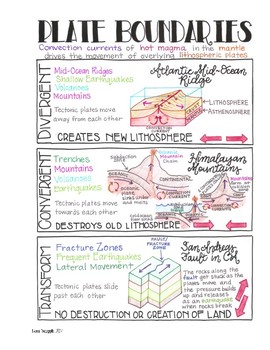 PLATE BOUNDARIES
Convection currents of hot magma in the mantle
drives the movement of overlying lithospheric plates
DIVERGENT
Mid-Ocean Ridges
Shallow Earthquakes
Volcanoes
Mountains
Tectonic plates move
away from each other
Atlantic Mid-Ocean
Ridge
LITHOSPHERE
ASTHENOSPHERE
CREATES NEW LITHOSPHERE
CONVERGENT
Trenches
Mountains
Volcanoes
Earthquakes
Tectonic plates move
towards each other
Himalayan
Mountains
DESTROYS OLD LITHOSPHERE
TRANSFORM
Fracture Zones
Frequent Earthquakes
Lateral Movement
Tectonic plates slide
past each other
FAULT/
FRACTURE
ZONE
San Andreas
Fault in Cal.
The rocks along the
fault get stuck as the
plates move and
the pressure builds
up and releases
as an earthquake
when rocks break
NO DESTRUCTION OR CREATION OF LAND